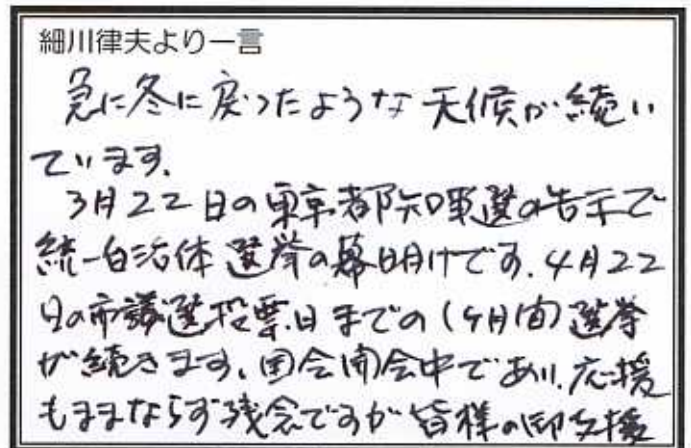 細川律夫より一言
急に冬に戻ったような天候が続い
ています。
3月22日の東京都知事選の告示で
統一自治体選挙の幕明けです。4月22
日の市議選投票日までの(ヶ月間)選挙
が続きます。国会開会中であり、応援
もままならず残念ですが皆様の御支援